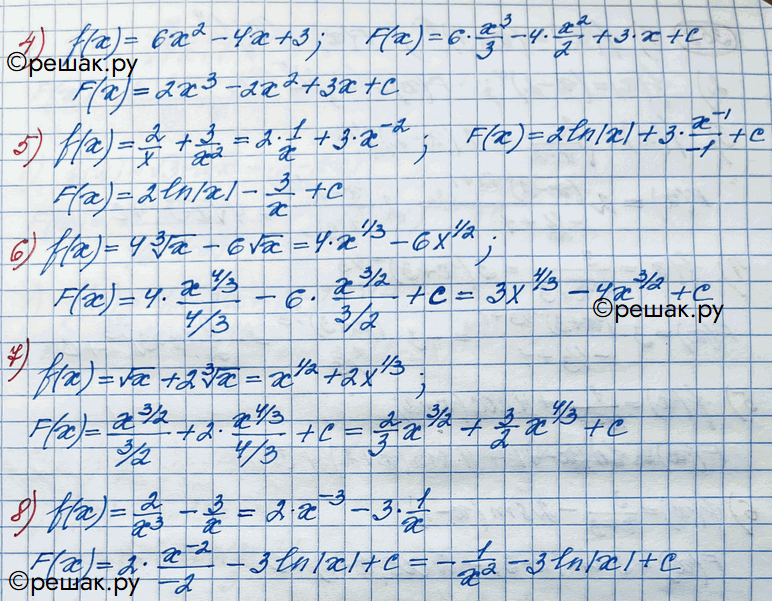 4) f(x) = 6x² - 4x + 3; F(x) = 6·x³/3 - 4·x²/2 + 3·x + c
©решак.ру
F(x) = 2x³ - 2x² + 3x + c
5) f(x) = 2/x + 3/x² = 2·1/x + 3·x⁻²; F(x) = 2ln|x| + 3·x⁻¹/-1 + c
F(x) = 2ln|x| - 3/x + c
6) f(x) = 4∛x - 6√x = 4·x^1/3 - 6x^1/2;
F(x) = 4·x^4/3/4/3 - 6·x^3/2/3/2 + c = 3x^4/3 - 4x^3/2 + c
©решак.ру
7) f(x) = √x + 2∛x = x^1/2 + 2x^1/3;
F(x) = x^3/2/3/2 + 2·x^4/3/4/3 + c = 2/3 x^3/2 + 3/2 x^4/3 + c
8) f(x) = 2/x³ - 3/x = 2·x⁻³ - 3·1/x
F(x) = 2·x⁻²/-2 - 3ln|x| + c = -1/x² - 3ln|x| + c
©решак.ру